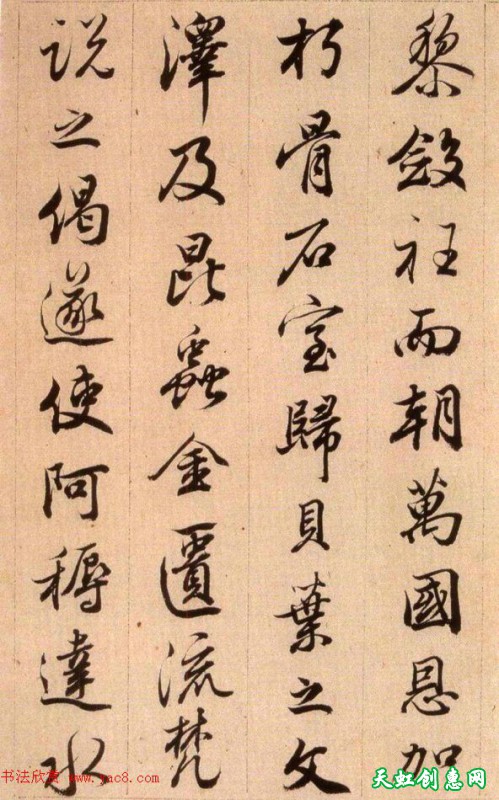 黎斂衽而朝萬國恩加
朽骨石室歸貝葉之文
澤及昆蟲金匱流梵
説之偈遂使阿耨達水
书法欣赏 www.yac8.com
天虹创意网